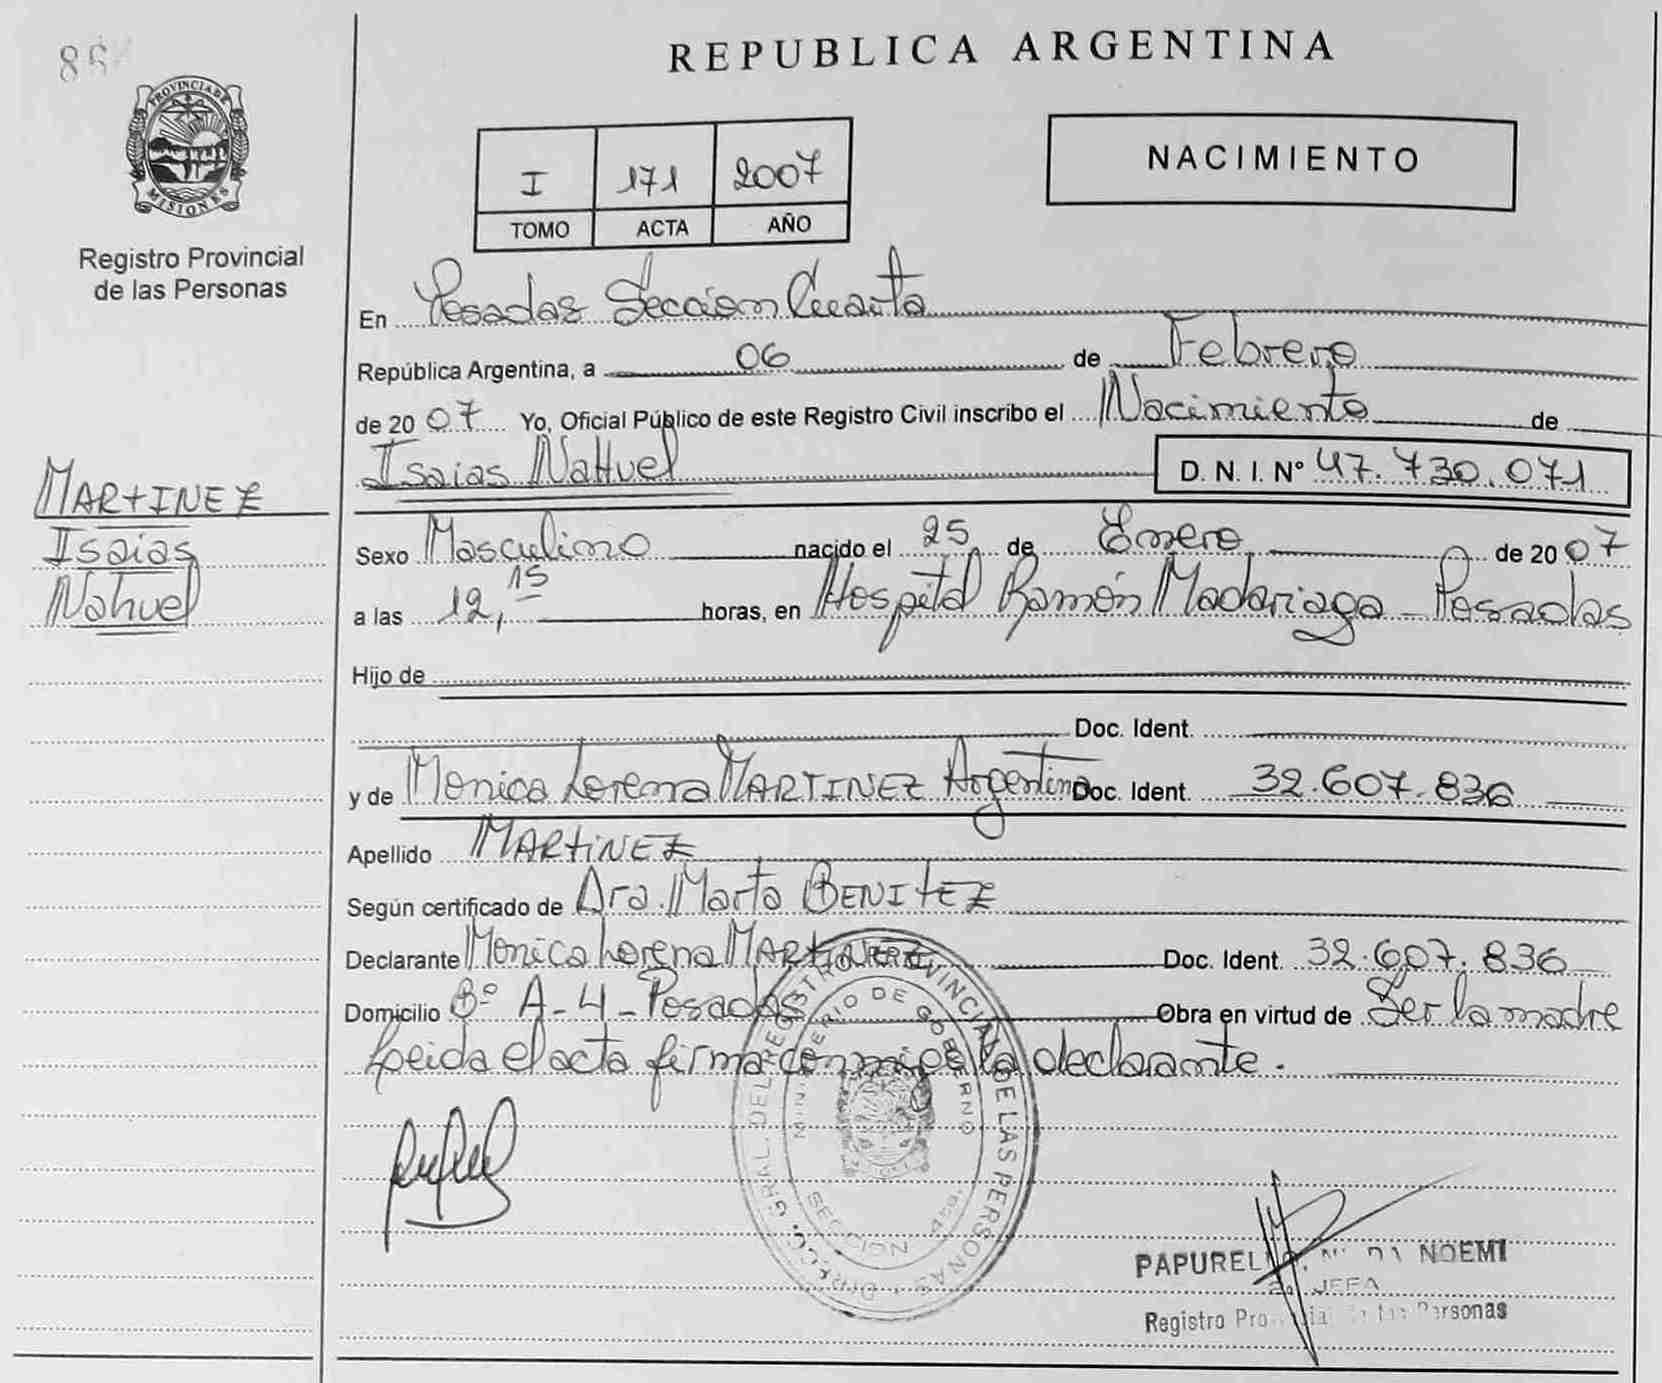 REPUBLICA ARGENTINA
PROVINCIA DE MISIONES
Registro Provincial
de las Personas
I 171 2007
TOMO ACTA AÑO
NACIMIENTO
En Posadas Sección Cuarta
República Argentina, a 06 de Febrero
de 2007 Yo, Oficial Público de este Registro Civil inscribo el Nacimiento de
Isaias NaHuel D. N. I. Nº 47.730.071
MARTINEZ
Isaias
Nahuel
Sexo Masculino nacido el 25 de Enero de 2007
a las 12,15 horas, en Hospital Ramón Madariaga - Posadas
Hijo de
Doc. Ident.
y de Monica Lorena MARTINEZ Argentina Doc. Ident. 32.607.836
Apellido MARTINEZ
Según certificado de Dra. Marta BENITEZ
Declarante Monica Lorena MARTINEZ Doc. Ident. 32.607.836
Domicilio Bº A-4 - Posadas Obra en virtud de Ser la madre
Leida el acta firma conmigo la declarante.
DIRECC. GRAL. DEL REGISTRO PROVINCIAL DE LAS PERSONAS
MINISTERIO DE GOBIERNO
SECCION
NOEMI
JEFA
Registro Provincial de las Personas